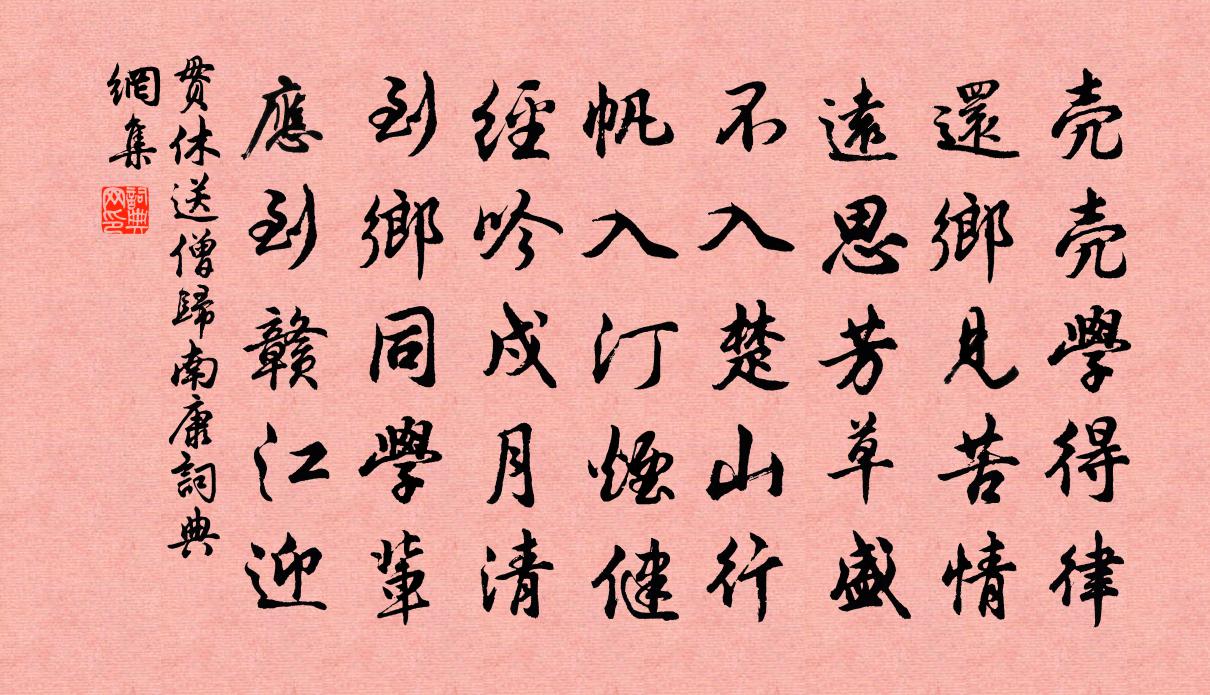 壳壳學得律
還鄉見苦情
遠思芳草盛
不入楚山行
帆入汀煙健
經吟戍月清
到鄉同學輩
應到贛江迎
貫休送僧歸南康詞典
網集
詞典
网印